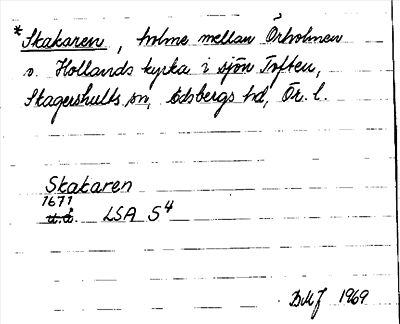 *Skakaren, holme mellan Örholmen
o. Hollands kyrka i sjön Toften,
Skagershults sn, Edsbergs hd, Ör. l.
Skakaren
1671
u.å. LSA S4
BMJ 1969